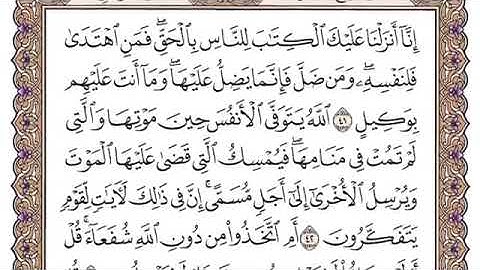 إِنَّآ أَنزَلْنَا عَلَيْكَ ٱلْكِتَٰبَ لِلنَّاسِ بِٱلْحَقِّ ۖ فَمَنِ ٱهْتَدَىٰ
فَلِنَفْسِهِۦ ۖ وَمَن ضَلَّ فَإِنَّمَا يَضِلُّ عَلَيْهَا ۖ وَمَآ أَنتَ عَلَيْهِم
بِوَكِيلٍ ٤١ ٱللَّهُ يَتَوَفَّى ٱلْأَنفُسَ حِينَ مَوْتِهَا وَٱلَّتِى
لَمْ تَمُتْ فِى مَنَامِهَا ۖ فَيُمْسِكُ ٱلَّتِى قَضَىٰ عَلَيْهَا ٱلْمَوْتَ
وَيُرْسِلُ ٱلْأُخْرَىٰٓ إِلَىٰٓ أَجَلٍ مُّسَمًّى ۚ إِنَّ فِى ذَٰلِكَ لَءَايَٰتٍ لِّقَوْمٍ
يَتَفَكَّرُونَ ٤٢ أَمِ ٱتَّخَذُوا۟ مِن دُونِ ٱللَّهِ شُفَعَآءَ ۚ قُلْ